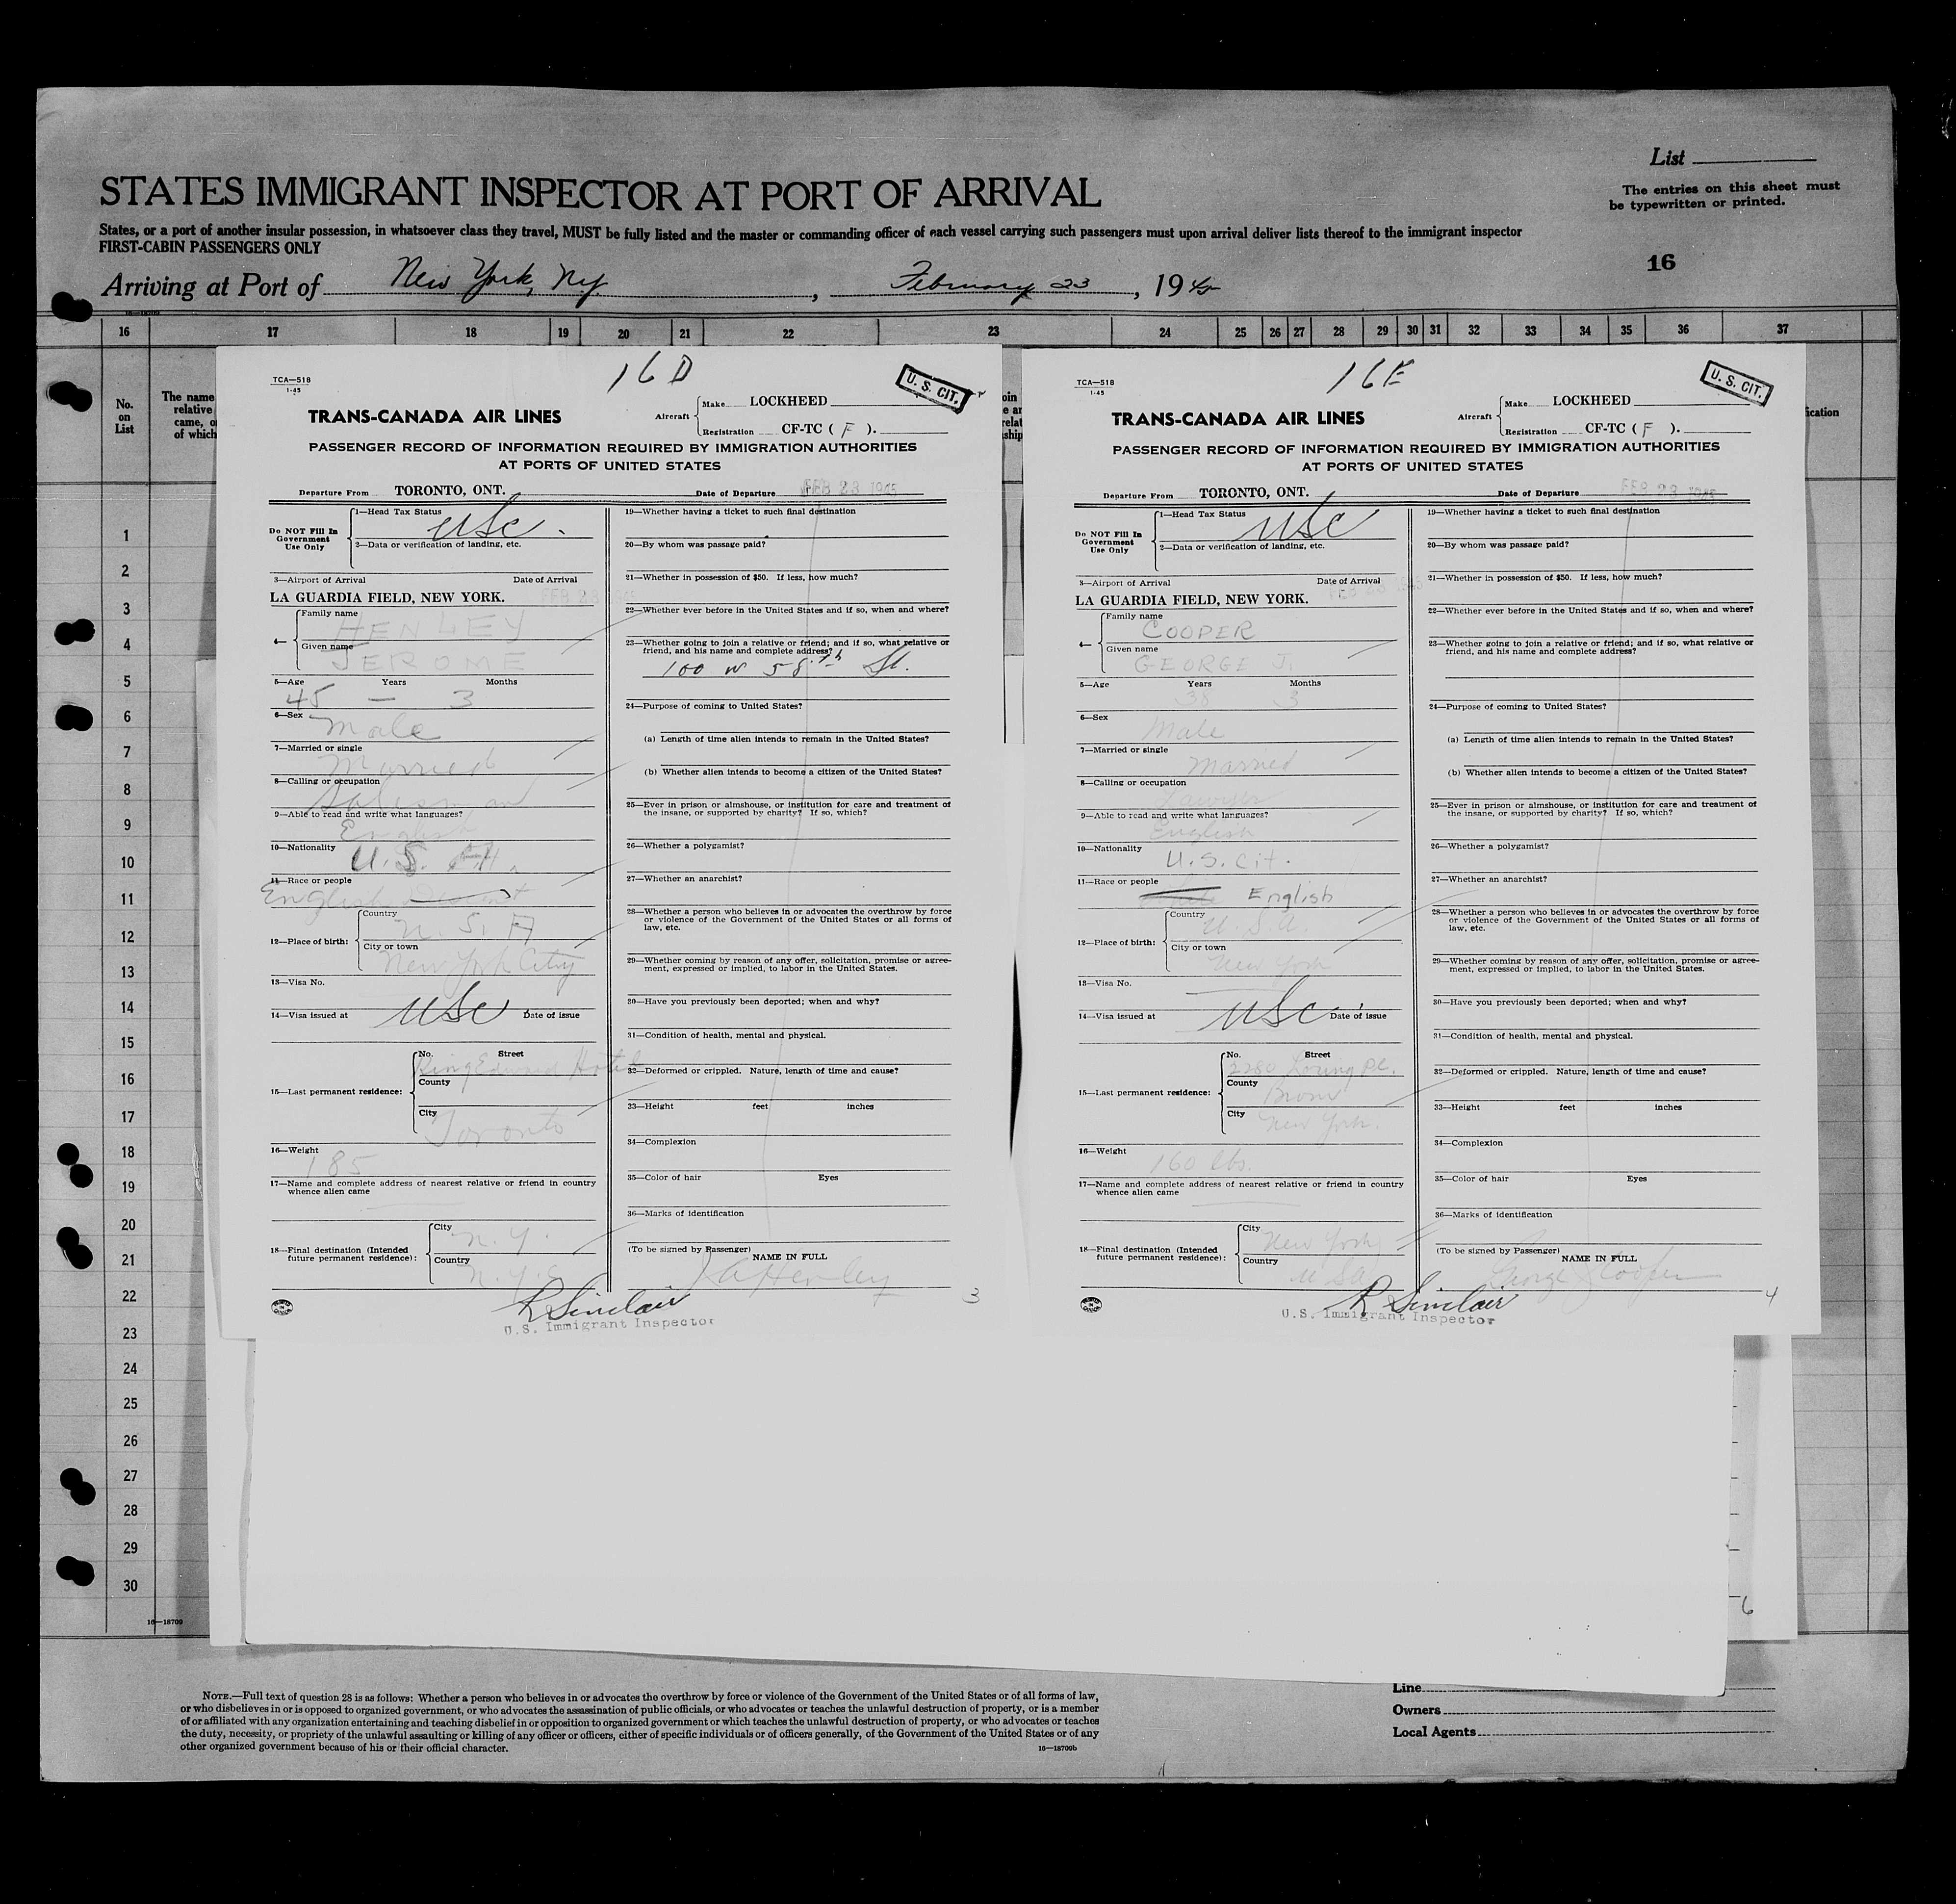 List
The entries on this sheet must
be typewritten or printed.
STATES IMMIGRANT INSPECTOR AT PORT OF ARRIVAL
States, or a port of another insular possession, in whatsoever class they travel, MUST be fully listed and the master or commanding officer of each vessel carrying such passengers must upon arrival deliver lists thereof to the immigrant inspector
FIRST-CABIN PASSENGERS ONLY
16
Arriving at Port of New York, Ny. , February 23 , 1945
16—18709
16 17 18 19 20 21 22 23 24 25 26 27 28 29 30 31 32 33 34 35 36 37
No.
on
List
The name
relative
came, o
of which
1
2
3
4
5
6
7
8
9
10
11
12
13
14
15
16
17
18
19
20
21
22
23
24
25
26
27
28
29
30
16—18709
16D
U. S. CIT.
TCA—518
1-45
TRANS-CANADA AIR LINES
Aircraft
Make LOCKHEED
Registration CF-TC ( F ).
PASSENGER RECORD OF INFORMATION REQUIRED BY IMMIGRATION AUTHORITIES
AT PORTS OF UNITED STATES
Departure From TORONTO, ONT. Date of Departure FEB 23 1945
Do NOT Fill In
Government
Use Only
1—Head Tax Status
USC .
2—Data or verification of landing, etc.
3—Airport of Arrival Date of Arrival
LA GUARDIA FIELD, NEW YORK. FEB 23 1945
4—
Family name
HENLEY
Given name
JEROME
5—Age Years Months
45 — 3
6—Sex
Male
7—Married or single
Married
8—Calling or occupation
Salesman
9—Able to read and write what languages?
English
10—Nationality
U. S.
11—Race or people
English
12—Place of birth:
Country
U. S. A
City or town
New York City
13—Visa No.
14—Visa issued at USC Date of issue
15—Last permanent residence:
No. Street
King Edward Hotel
County
City
Toronto
16—Weight
185
17—Name and complete address of nearest relative or friend in country
whence alien came
18—Final destination (Intended
future permanent residence):
City
N. Y.
Country
19—Whether having a ticket to such final destination
20—By whom was passage paid?
21—Whether in possession of $50. If less, how much?
22—Whether ever before in the United States and if so, when and where?
23—Whether going to join a relative or friend; and if so, what relative or
friend, and his name and complete address?
100 W 58th St.
24—Purpose of coming to United States?
(a) Length of time alien intends to remain in the United States?
(b) Whether alien intends to become a citizen of the United States?
25—Ever in prison or almshouse, or institution for care and treatment of
the insane, or supported by charity? If so, which?
26—Whether a polygamist?
27—Whether an anarchist?
28—Whether a person who believes in or advocates the overthrow by force
or violence of the Government of the United States or all forms of
law, etc.
29—Whether coming by reason of any offer, solicitation, promise or agree-
ment, expressed or implied, to labor in the United States.
30—Have you previously been deported; when and why?
31—Condition of health, mental and physical.
32—Deformed or crippled. Nature, length of time and cause?
33—Height feet inches
34—Complexion
35—Color of hair Eyes
36—Marks of identification
(To be signed by Passenger)
NAME IN FULL
Henley
3
R Sinclair
U.S. Immigrant Inspector
16E
U. S. CIT.
TCA—518
1-45
TRANS-CANADA AIR LINES
Aircraft
Make LOCKHEED
Registration CF-TC ( F ).
PASSENGER RECORD OF INFORMATION REQUIRED BY IMMIGRATION AUTHORITIES
AT PORTS OF UNITED STATES
Departure From TORONTO, ONT. Date of Departure FEB 23 1945
Do NOT Fill In
Government
Use Only
1—Head Tax Status
USC
2—Data or verification of landing, etc.
3—Airport of Arrival Date of Arrival
LA GUARDIA FIELD, NEW YORK. FEB 23 1945
4—
Family name
COOPER
Given name
GEORGE J.
5—Age Years Months
38 3
6—Sex
Male
7—Married or single
Married
8—Calling or occupation
Lawyer
9—Able to read and write what languages?
English
10—Nationality
U.S. Cit.
11—Race or people
English
12—Place of birth:
Country
U. S. A.
City or town
New York
13—Visa No.
14—Visa issued at USC Date of issue
15—Last permanent residence:
No. Street
2280 Loring Pl.
County
Bronx
City
New York.
16—Weight
160 lbs.
17—Name and complete address of nearest relative or friend in country
whence alien came
18—Final destination (Intended
future permanent residence):
City
New York
Country
USA
19—Whether having a ticket to such final destination
20—By whom was passage paid?
21—Whether in possession of $50. If less, how much?
22—Whether ever before in the United States and if so, when and where?
23—Whether going to join a relative or friend; and if so, what relative or
friend, and his name and complete address?
24—Purpose of coming to United States?
(a) Length of time alien intends to remain in the United States?
(b) Whether alien intends to become a citizen of the United States?
25—Ever in prison or almshouse, or institution for care and treatment of
the insane, or supported by charity? If so, which?
26—Whether a polygamist?
27—Whether an anarchist?
28—Whether a person who believes in or advocates the overthrow by force
or violence of the Government of the United States or all forms of
law, etc.
29—Whether coming by reason of any offer, solicitation, promise or agree-
ment, expressed or implied, to labor in the United States.
30—Have you previously been deported; when and why?
31—Condition of health, mental and physical.
32—Deformed or crippled. Nature, length of time and cause?
33—Height feet inches
34—Complexion
35—Color of hair Eyes
36—Marks of identification
(To be signed by Passenger)
NAME IN FULL
George J Cooper
4
R Sinclair
U.S. Immigrant Inspector
6
NOTE.—Full text of question 28 is as follows: Whether a person who believes in or advocates the overthrow by force or violence of the Government of the United States or of all forms of law,
or who disbelieves in or is opposed to organized government, or who advocates the assassination of public officials, or who advocates or teaches the unlawful destruction of property, or is a member
of or affiliated with any organization entertaining and teaching disbelief in or opposition to organized government or which teaches the unlawful destruction of property, or who advocates or teaches
the duty, necessity, or propriety of the unlawful assaulting or killing of any officer or officers, either of specific individuals or of officers generally, of the Government of the United States or of any
other organized government because of his or their official character.
16—18709b
Line
Owners
Local Agents